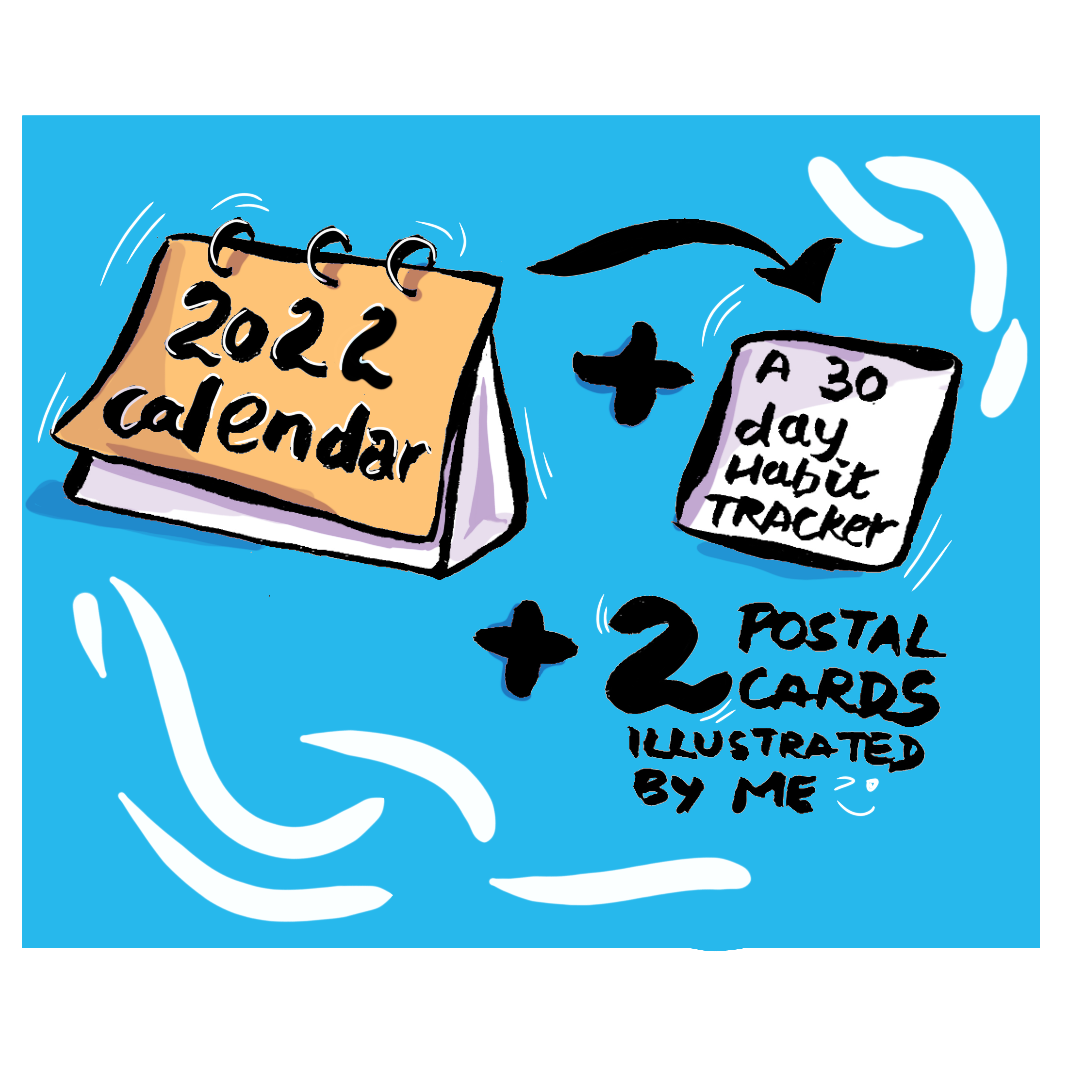 2022
calendar
+
A 30
day
Habit
TRACKer
+ 2 POSTAL
CARDS
ILLUSTRATED
BY ME